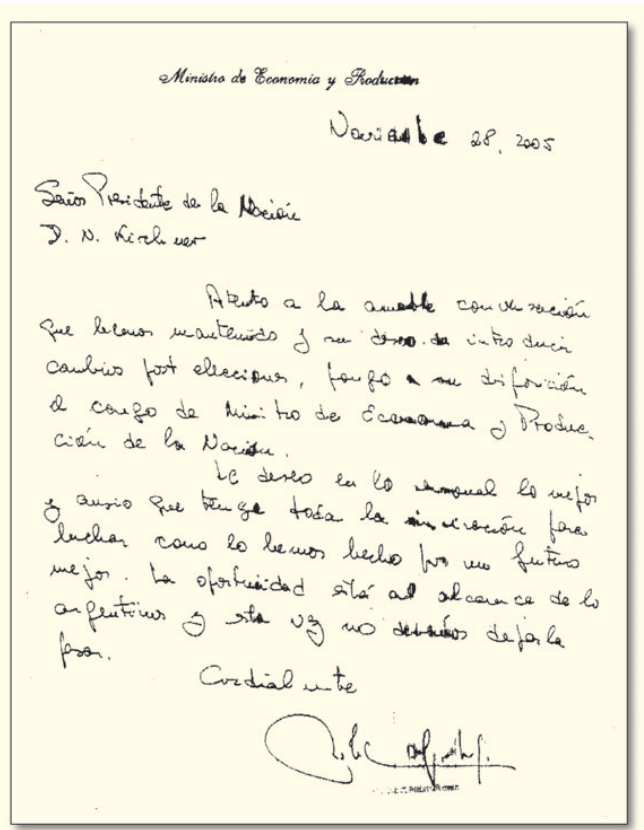 Ministro de Economía y Producción
Noviembre 28, 2005
Señor Presidente de la Nación
D. N. Kirchner
Atento a la amable conversación
que hemos mantenido y su deseo de introducir
cambios post elecciones, pongo a su disposición
el cargo de Ministro de Economía y Produc-
ción de la Nación.
Le deseo en lo personal lo mejor
y ansío que tenga toda la inspiración para
luchar como lo hemos hecho por un futuro
mejor. La oportunidad está al alcance de lo
argentinos y esta vez no debemos dejarla
pasar.
Cordialmente